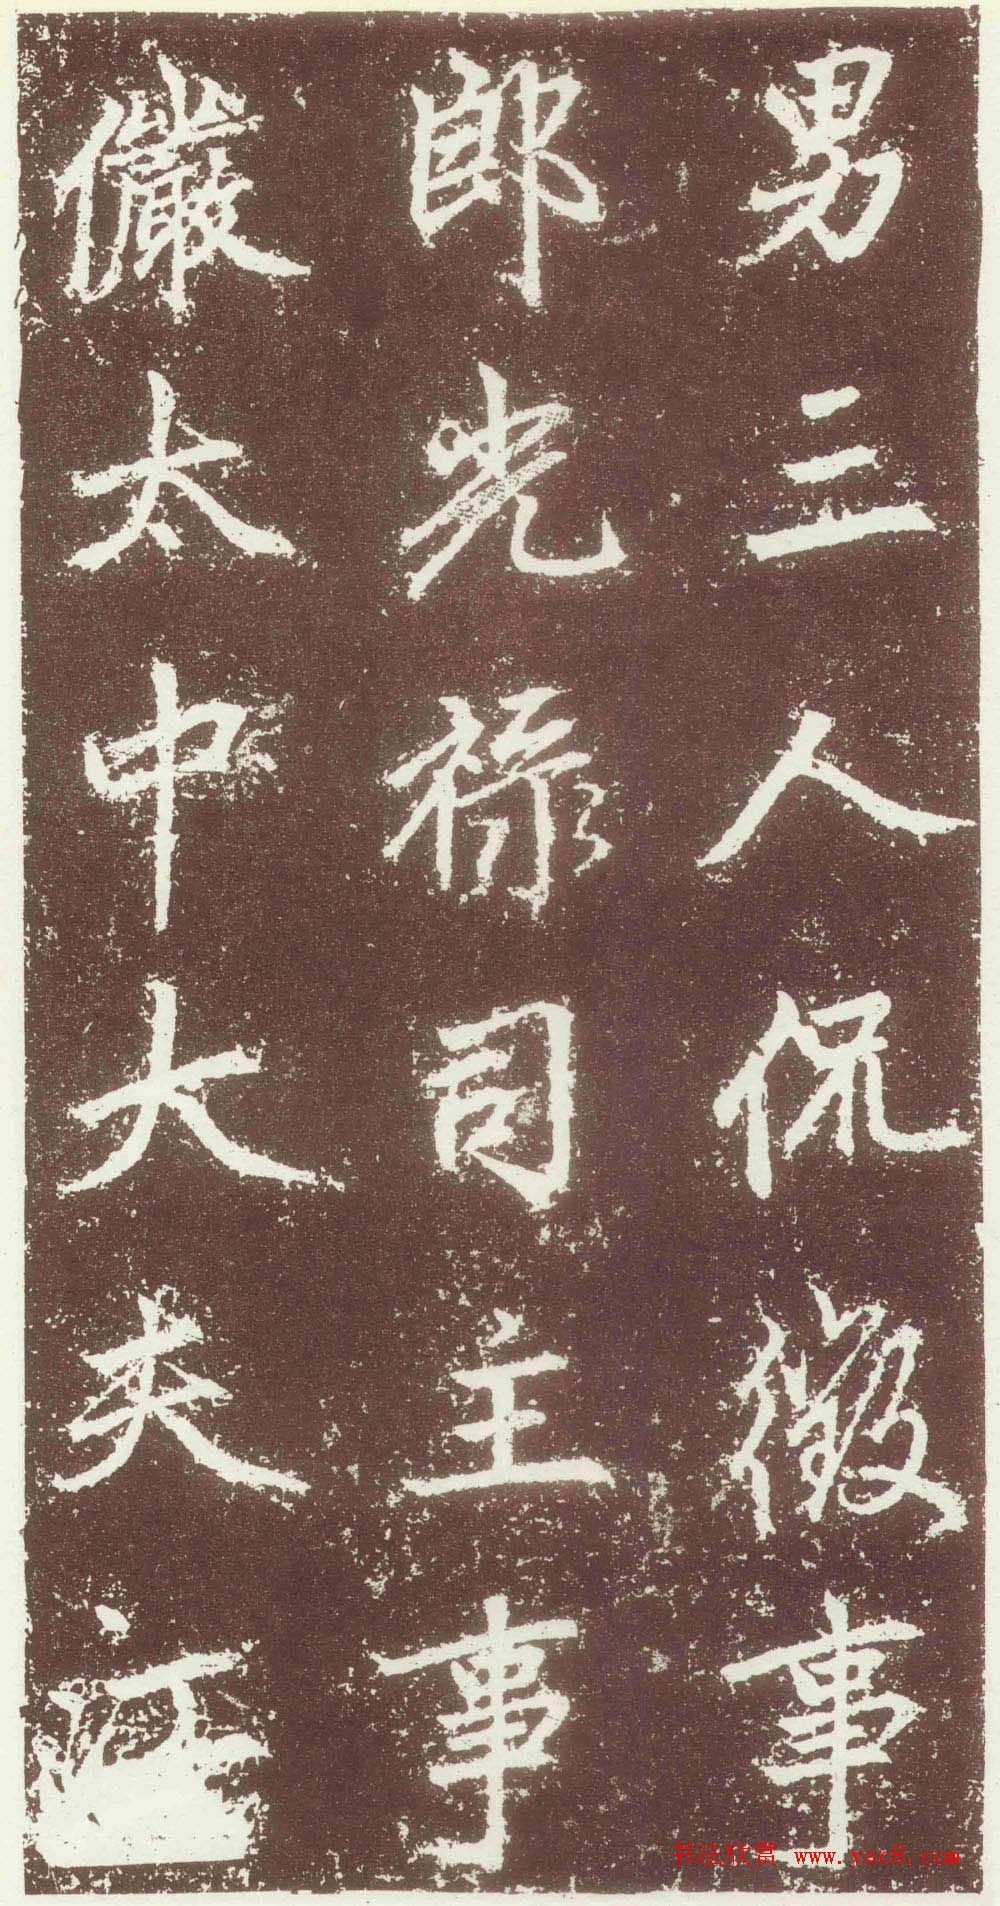 男三人侃儆事
郎光祿司主事
儼太中大夫江
书法欣赏 www.yac8.com